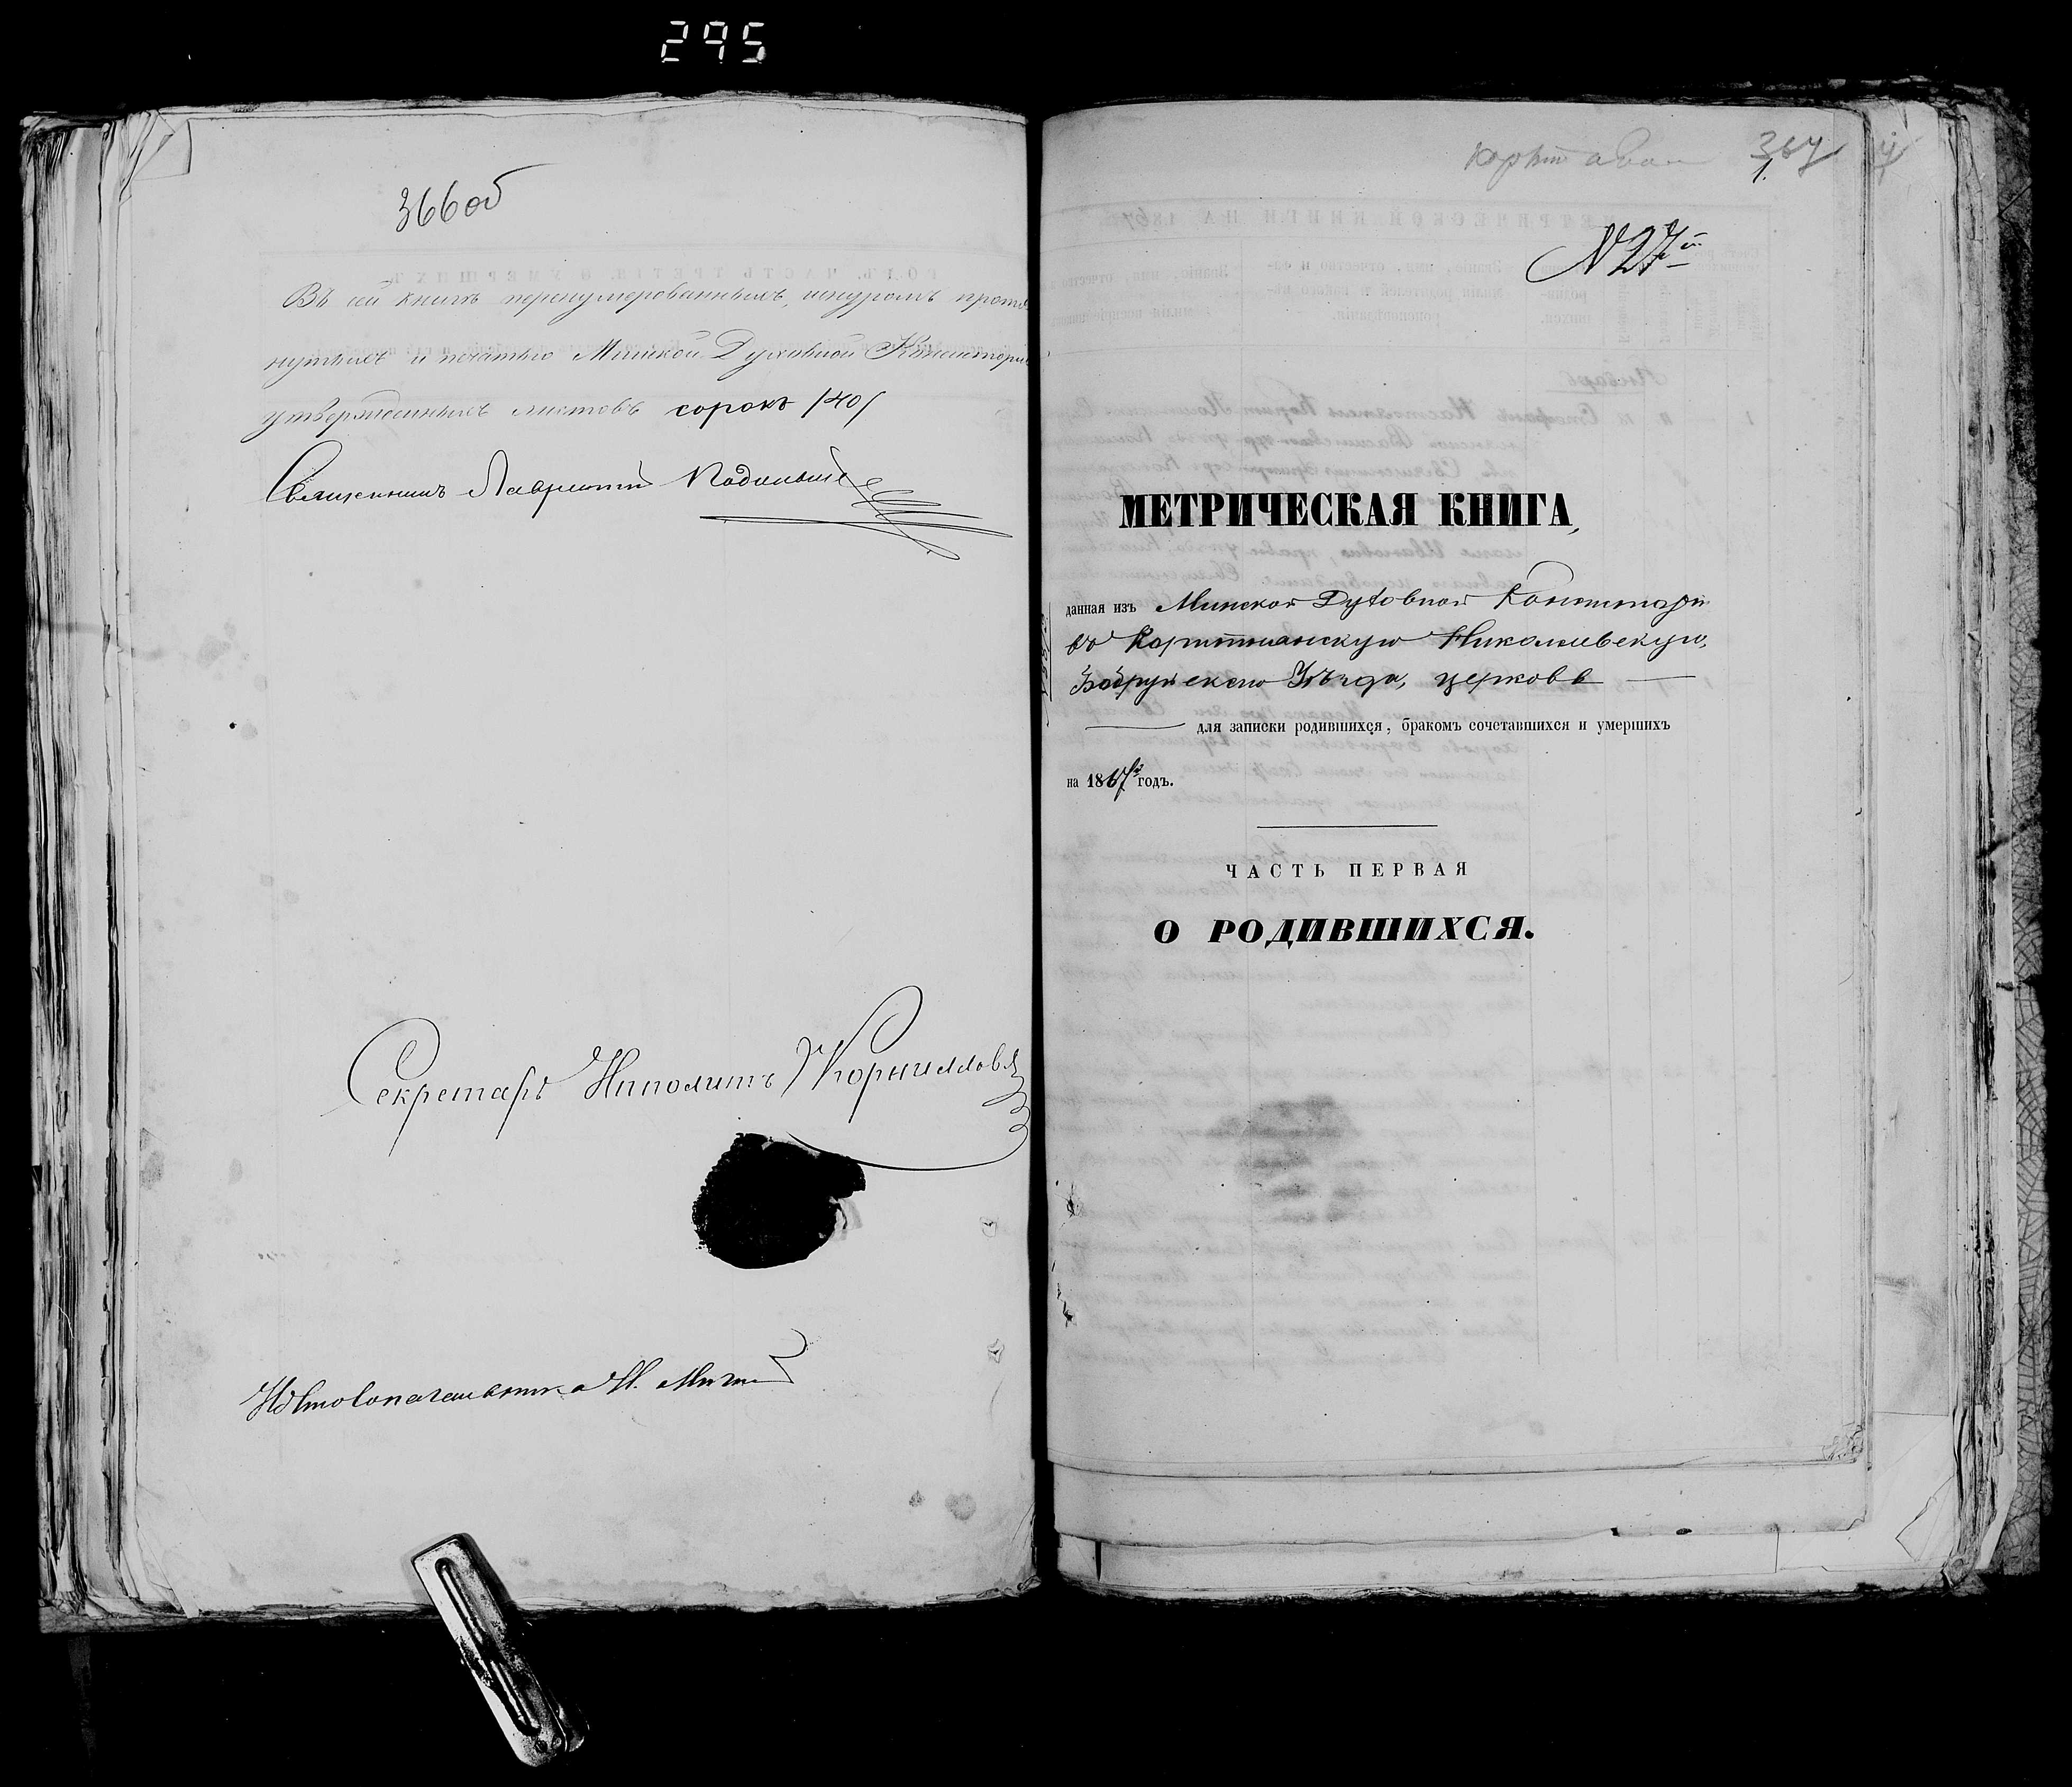 295
366об
Въ сей книгѣ перенумерованныхъ, шнуромъ протя
нутыхъ и печатью Минской Духовной Консисторіи
утвержденныхъ листовъ сорокъ /40/
Священникъ Лаврентій
Секретарь Иполитъ Корнилловъ
367
1.
N 27й
МЕТРИЧЕСКАЯ КНИГА,
данная изъ Минской Духовной Консисторіи
въ Николаевскую,
Бобруйскаго Уѣзда, церковь
для записки родившихся, бракомъ сочетавшихся и умершихъ
на 1867й годъ.
ЧАСТЬ ПЕРВАЯ
О РОДИВШИХСЯ.